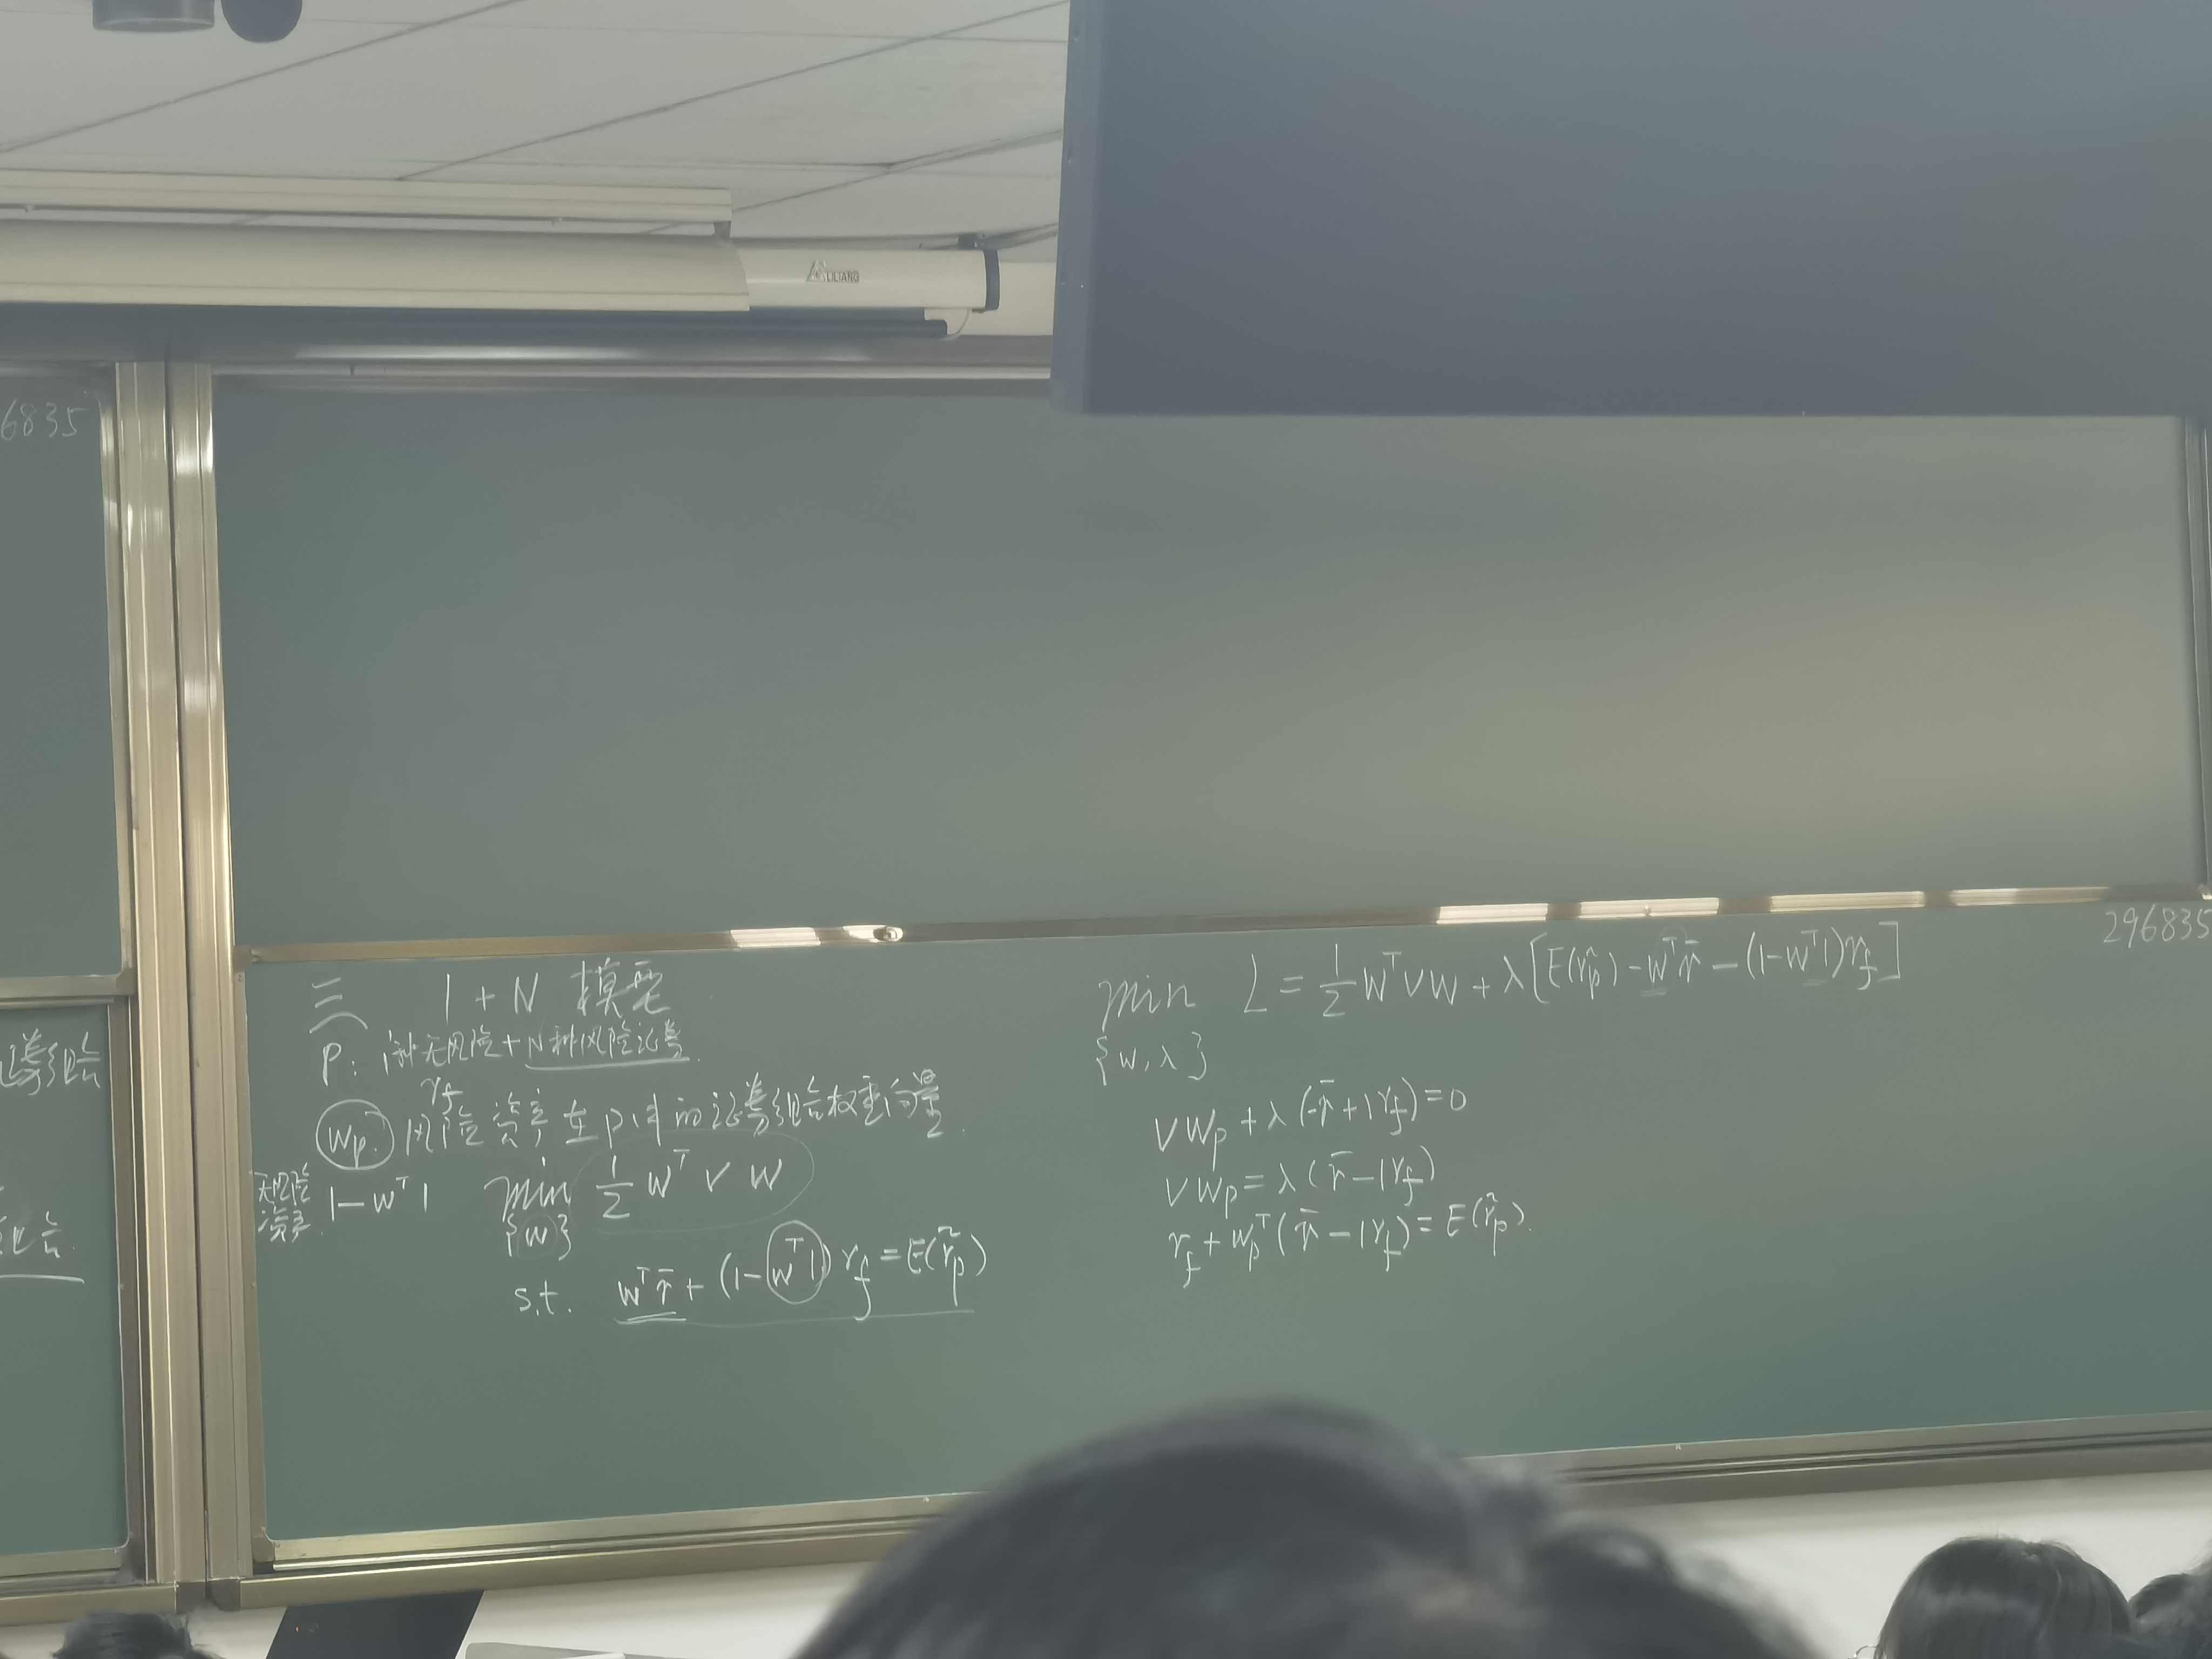 LILIANG
6835
296835
三 1+N 模型
P: 1种无风险+N种风险证券
r_f
W_p. 风险资产在P中的证券组合权重向量.
无风险资产. 1-W^T1
min 1/2 W^T V W
{w}
s.t. W^T r̄ + (1-W^T1) r_f = E(r̃_p)
min L = 1/2 W^T V W + λ[E(r̃_p) - W^T r̄ - (1-W^T1) r_f]
{w, λ}
V W_p + λ(-r̄+1r_f) = 0
V W_p = λ(r̄-1r_f)
r_f + W_p^T(r̄-1r_f) = E(r̃_p).